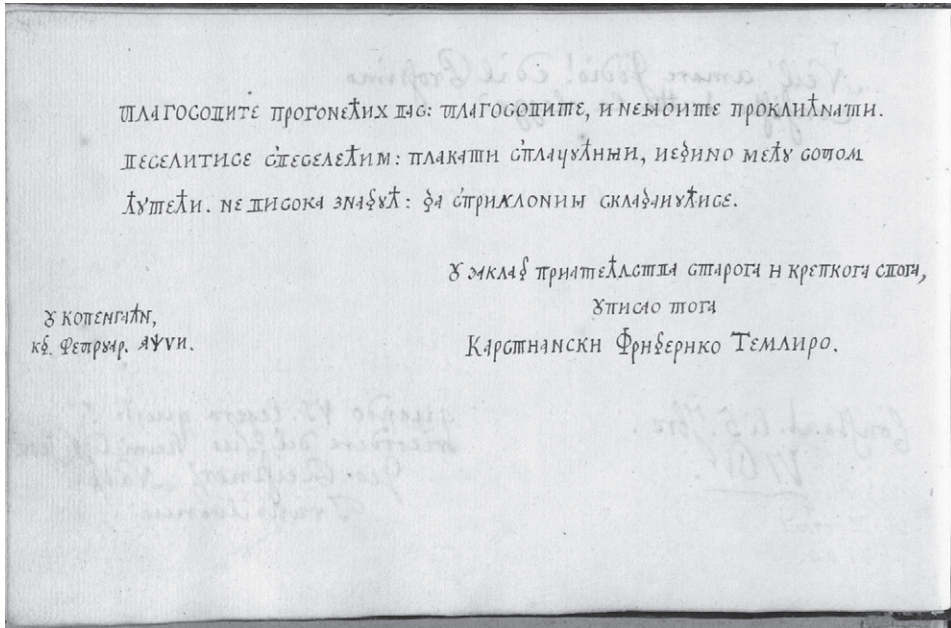 благосовите прогонећих вас: благосовите, и немоите проклићнати.
веселитисе с'веселећим: плакати с'плачућими, иедино мећу собом
ћутећи. не висока знадућ: да с'приклоними складаиућисе.
ꙋ заклад приатећлства старога и крепкога свога,
ꙋписао тога
Карстиански Фридерико Темлиро.
ꙋ копенгаћн,
кд. Февруар. аѱѵи.